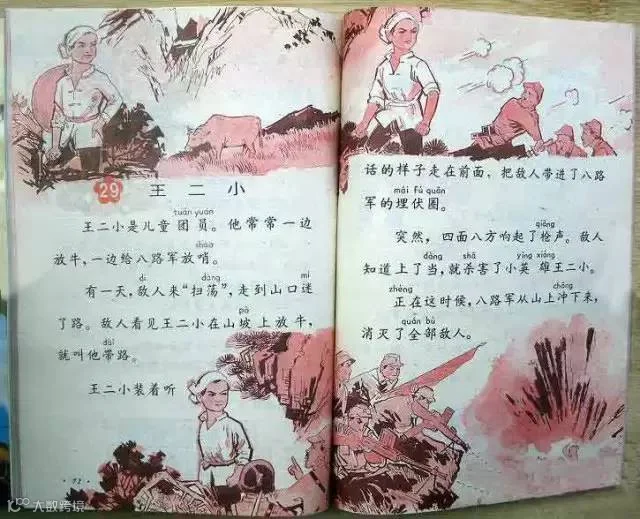 29 王二小
tuán yuán
王二小是儿童团员。他常常一边
shào
放牛，一边给八路军放哨。
dí dàng mí
有一天，敌人来“扫荡”，走到山口迷
pō
了路。敌人看见王二小在山坡上放牛，
dài
就叫他带路。
王二小装着听
72
话的样子走在前面，把敌人带进了八路
mái fú quān
军的埋伏圈。
qiāng
突然，四面八方响起了枪声。敌人
dàng shā yīng xióng
知道上了当，就杀害了小英雄王二小。
zhèng chōng
正在这时候，八路军从山上冲下来，
quán bù
消灭了全部敌人。
大数跨境